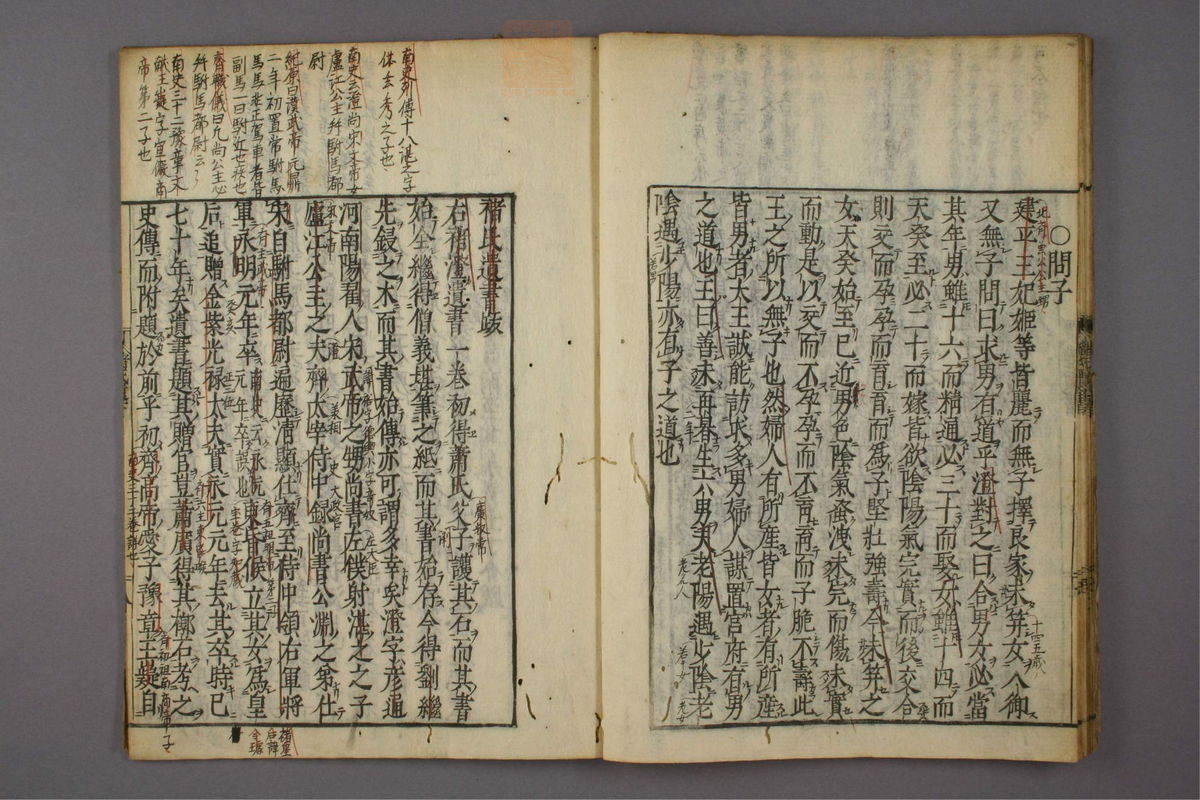 ○問子
建平王妃姬等皆麗而無子擇良家未笄女入御
又無子問曰求男有道乎澄對之曰合男女必當
其年男雖十六而精通必三十而娶女雖十四而
天癸至必二十而嫁皆欲陰陽氣完實而後交合
則交而孕孕而育育而為子堅壯強壽今未笄之
女天癸始至已近男色陰氣蚤洩未完而傷未實
而動是以交而不孕孕而不育育而子脆不壽此
王之所以無子也然婦人有所產皆女者有所產
皆男者大王誠能訪求多男婦人謀置宮府有男
之道也王曰善未再朞生六男夫老陽遇少陰老
陰遇少陽亦有子之道也
褚氏遺書跋
右褚澄遺書一卷初得蕭氏父子護其石而其書
始全繼得僧義堪筆之紙而其書始存今得劉繼
先鋟之木而其書始傳亦可謂多幸矣澄字彥通
河南陽翟人宋武帝之甥尚書左僕射湛之之子
廬江公主之夫齊太宰侍中録尚書公淵之弟仕
宋自駙馬都尉遍歷清顯仕齊至侍中領右軍將
軍永明元年卒東昏侯立其女為皇
后追贈金紫光禄大夫實永元元年去其卒時已
七十年矣遺書題其贈官豈蕭廣得其槨石考之
史傳而附題於前乎初齊高帝愛子豫章王嶷自
南史列傳十八湛之字
休玄秀之子也
南史云澄尚宋文帝女
廬江公主拜駙馬都
尉
紀原曰漢武帝元鼎
二年初置常駙馬
馬馬非正駕車者皆
副馬一曰駙近也疾也
齊職儀曰凡尚公主必
拜駙馬都尉云云
南史三十二豫章文
獻王嶷字宣儼高
帝第二子也